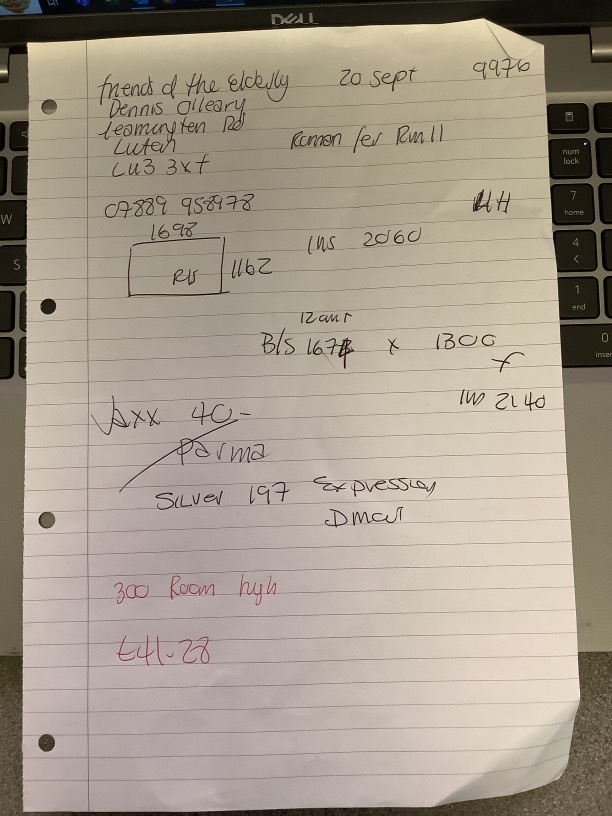 DELL
friends of the elderly 20 sept 9976
Dennis Olleary
Leamington Rd
Luten
LU3 3xf
Roman for Rm 11
07889 958978
HH
1698
R/S 1162
Ins 2060
12 am
B/S 167 x 1300
f
Ins 2140
Axx 40-
Parma
Silver 197 Expression
Dmat
300 Room high
£41-28
num lock
7
home
4
<
1
end
0
W
S